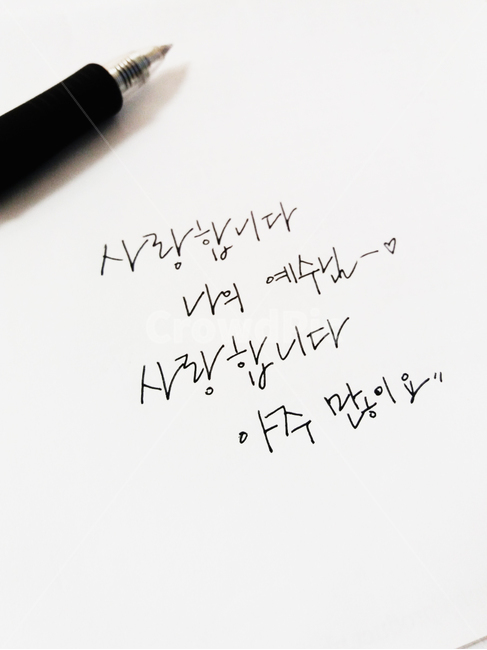 사랑합니다
나의 예수님~♡
사랑합니다
아주 많이요"
CrowdPic